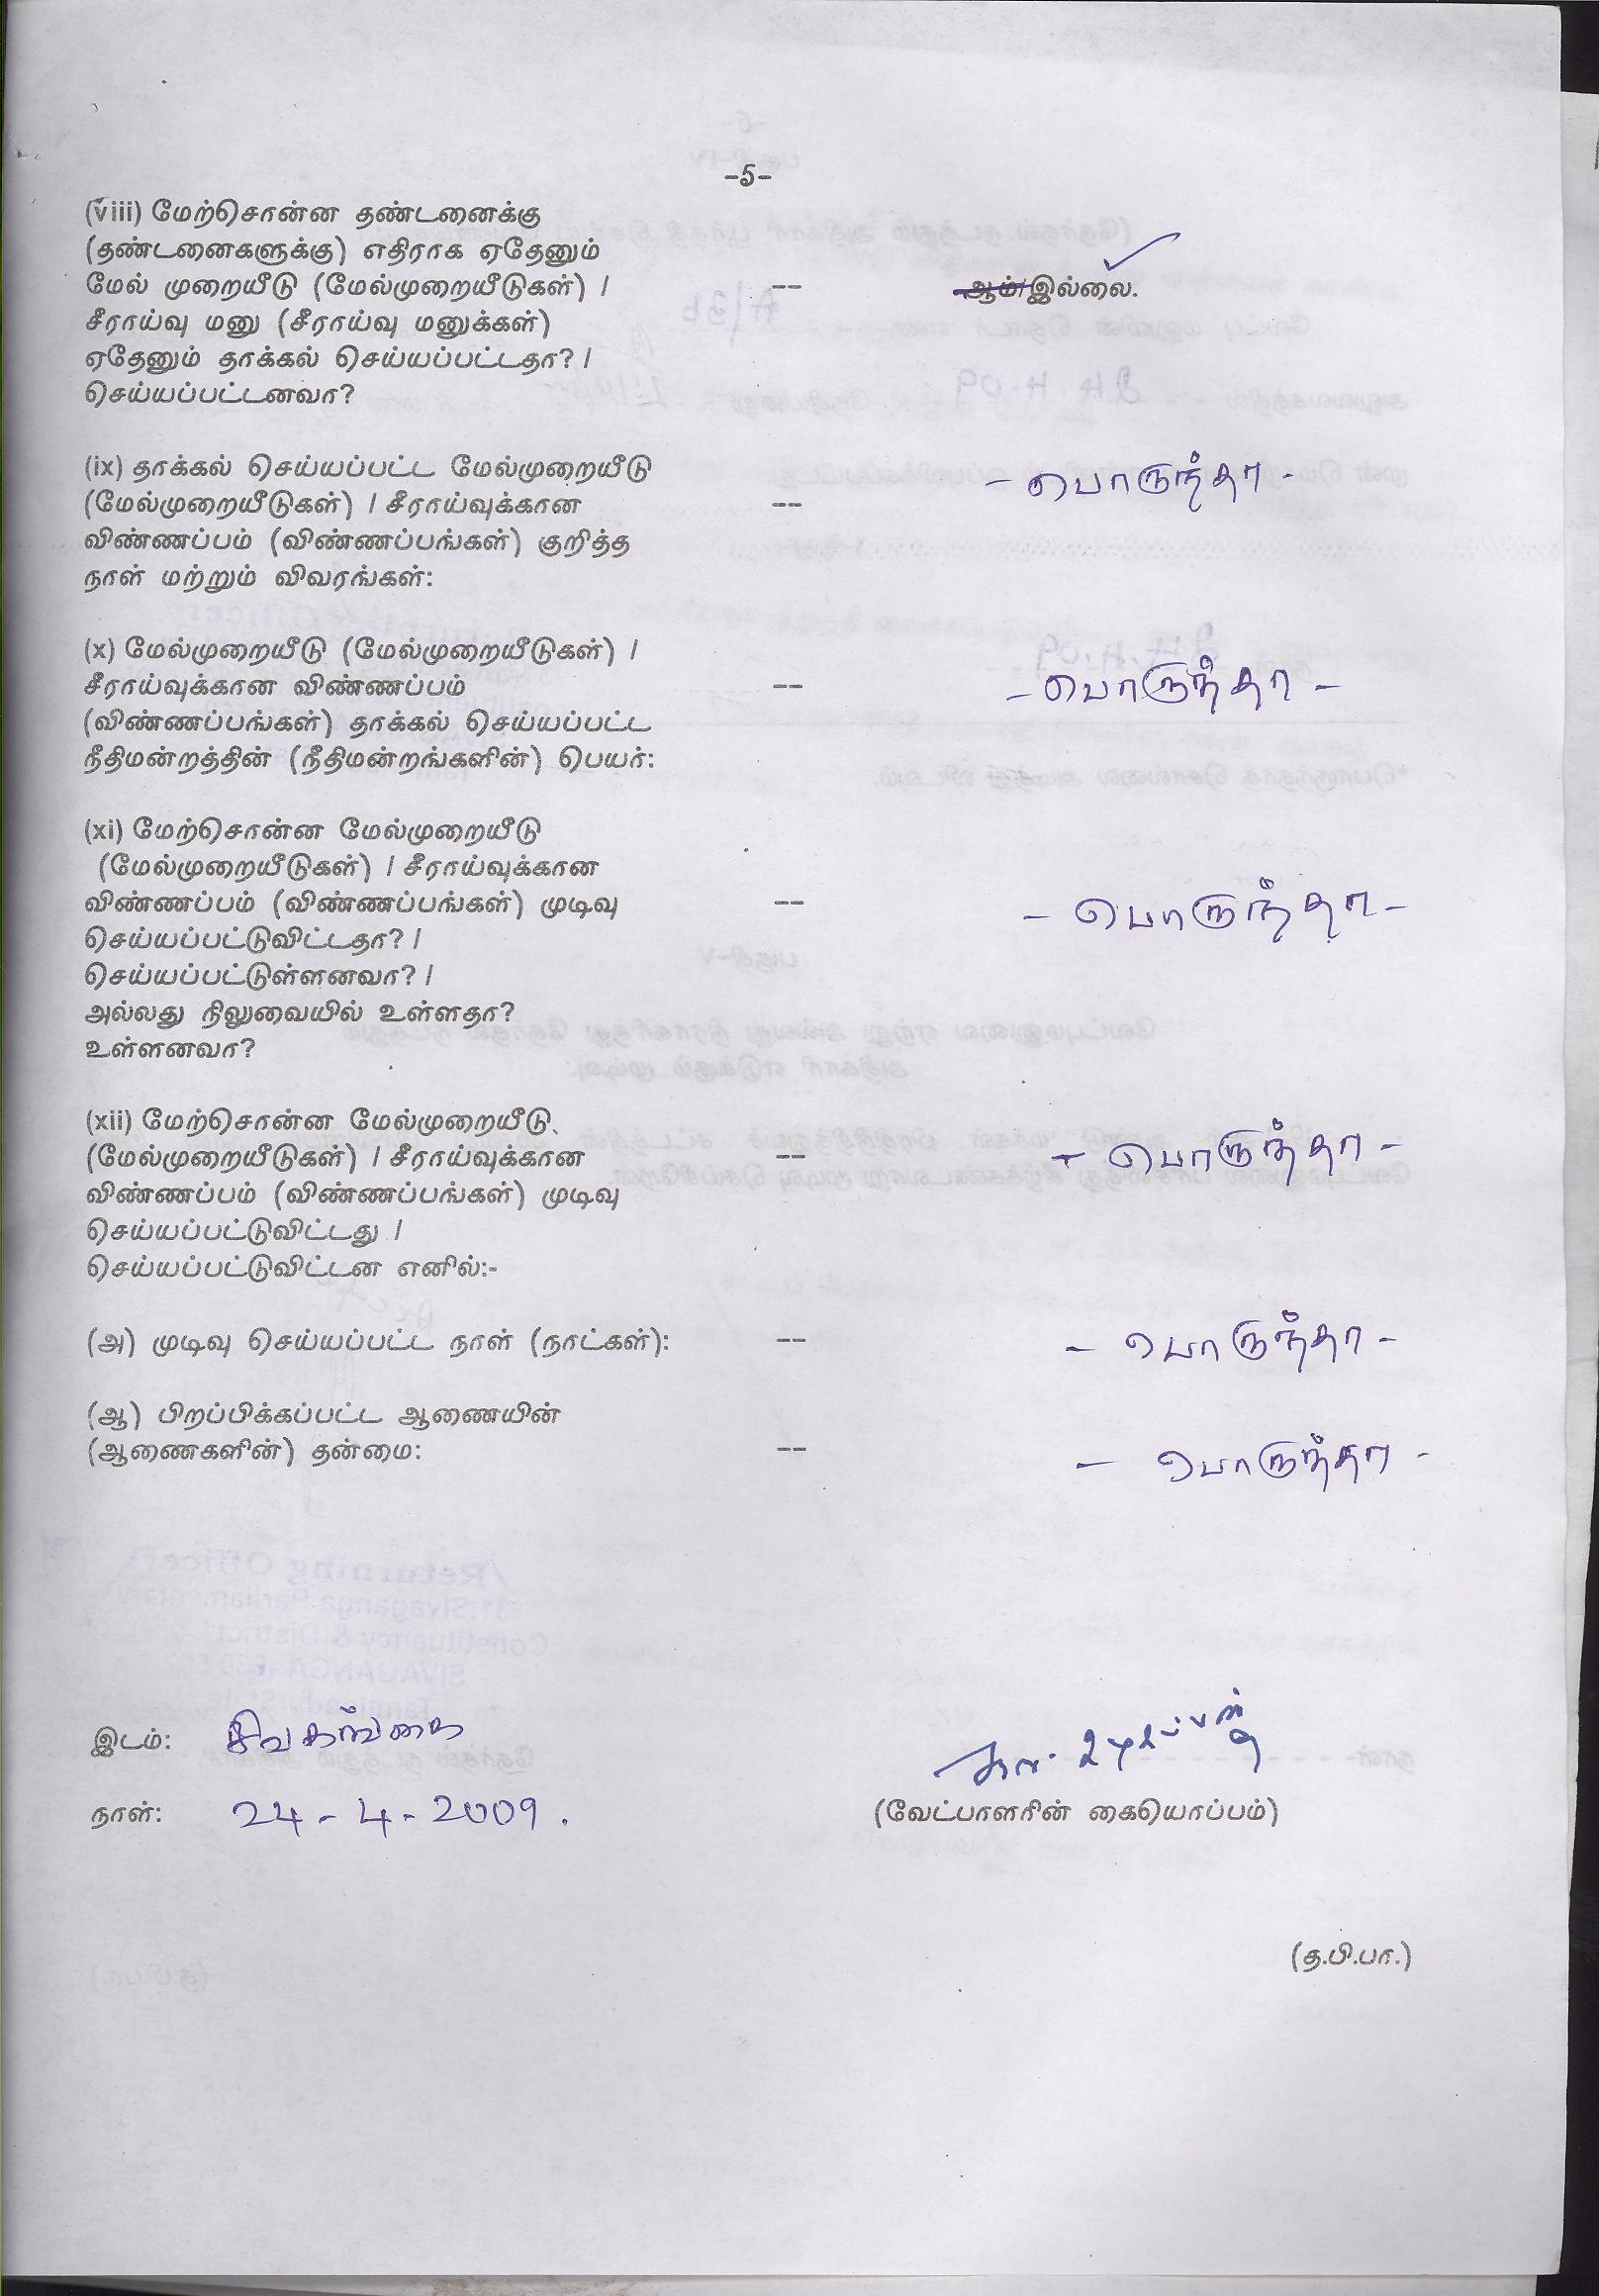 -5-
(viii) மேற்சொன்ன தண்டனைக்கு
(தண்டனைகளுக்கு) எதிராக ஏதேனும்
மேல் முறையீடு (மேல்முறையீடுகள்) / -- ஆம்/இல்லை.
சீராய்வு மனு (சீராய்வு மனுக்கள்)
ஏதேனும் தாக்கல் செய்யப்பட்டதா? /
செய்யப்பட்டனவா?
(ix) தாக்கல் செய்யப்பட்ட மேல்முறையீடு - பொருந்தா -
(மேல்முறையீடுகள்) / சீராய்வுக்கான --
விண்ணப்பம் (விண்ணப்பங்கள்) குறித்த
நாள் மற்றும் விவரங்கள்:
(x) மேல்முறையீடு (மேல்முறையீடுகள்) /
சீராய்வுக்கான விண்ணப்பம் -- - பொருந்தா -
(விண்ணப்பங்கள்) தாக்கல் செய்யப்பட்ட
நீதிமன்றத்தின் (நீதிமன்றங்களின்) பெயர்:
(xi) மேற்சொன்ன மேல்முறையீடு
(மேல்முறையீடுகள்) / சீராய்வுக்கான
விண்ணப்பம் (விண்ணப்பங்கள்) முடிவு -- - பொருந்தா -
செய்யப்பட்டுவிட்டதா? /
செய்யப்பட்டுள்ளனவா? /
அல்லது நிலுவையில் உள்ளதா?
உள்ளனவா?
(xii) மேற்சொன்ன மேல்முறையீடு
(மேல்முறையீடுகள்) / சீராய்வுக்கான -- - பொருந்தா -
விண்ணப்பம் (விண்ணப்பங்கள்) முடிவு
செய்யப்பட்டுவிட்டது /
செய்யப்பட்டுவிட்டன எனில்:-
(அ) முடிவு செய்யப்பட்ட நாள் (நாட்கள்): -- - பொருந்தா -
(ஆ) பிறப்பிக்கப்பட்ட ஆணையின்
(ஆணைகளின்) தன்மை: -- - பொருந்தா -
இடம்: சிவகங்கை
நாள்: 24-4-2009. (வேட்பாளரின் கையொப்பம்)
(த.பி.பா.)